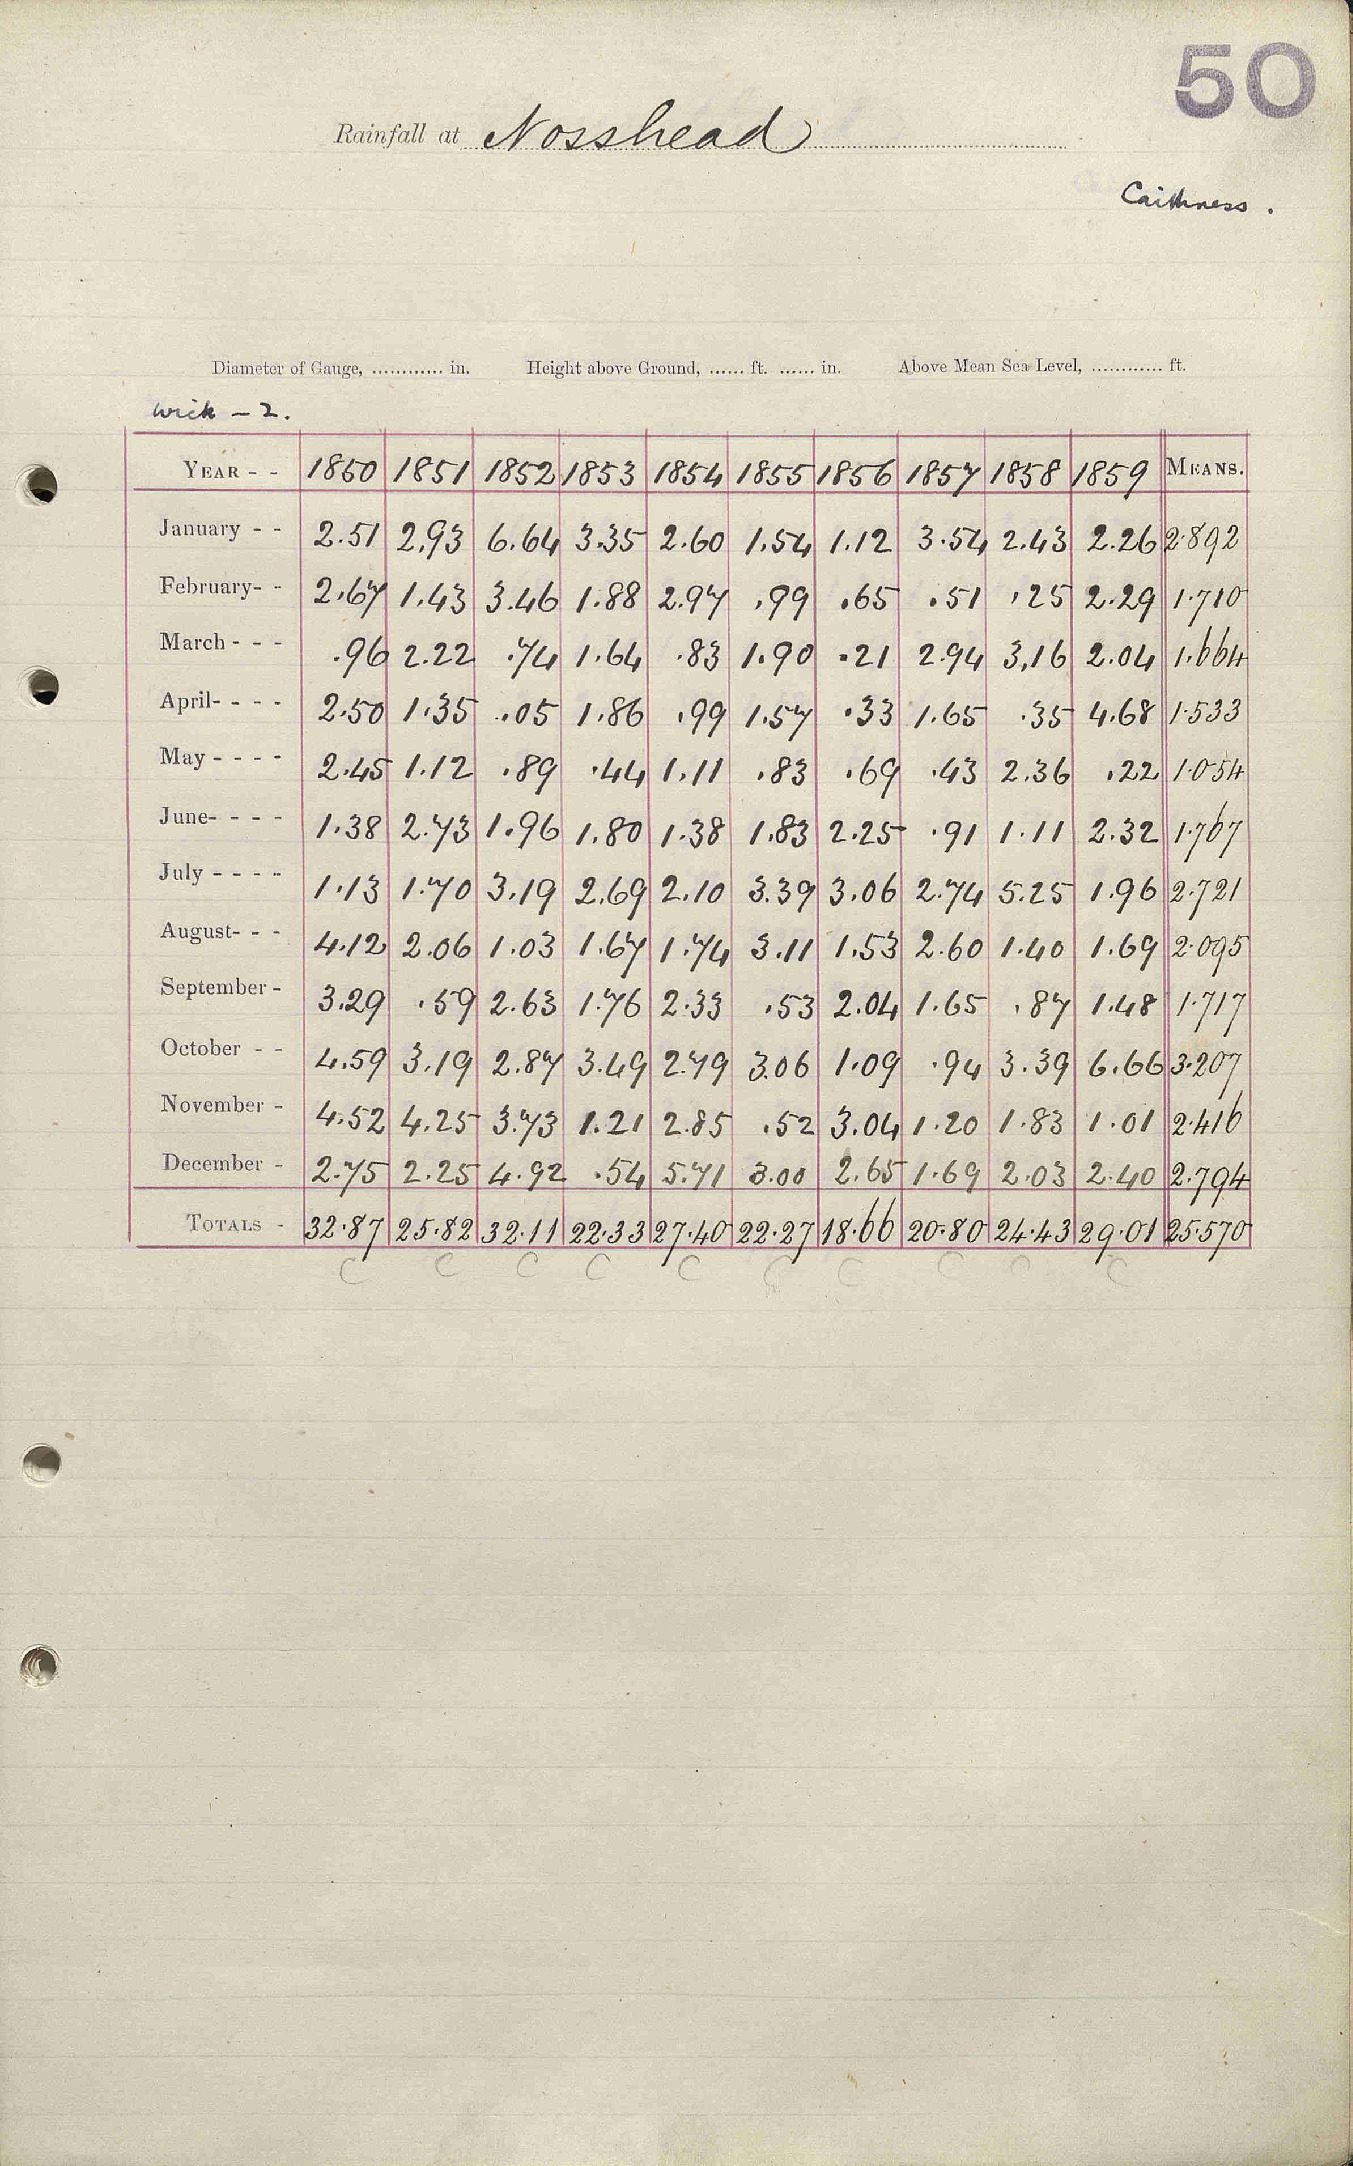 50
Rainfall at Nosshead
Caithness.
Diameter of Gauge, ............ in. Height above Ground, ...... ft. ...... in. Above Mean Sea Level, ............ ft.
Wick – 2.
YEAR - - 1850 1851 1852 1853 1854 1855 1856 1857 1858 1859 MEANS.
January - - 2.51 2.93 6.64 3.35 2.60 1.54 1.12 3.54 2.43 2.26 2.892
February- - 2.67 1.43 3.46 1.88 2.97 .99 .65 .51 .25 2.29 1.710
March - - - .96 2.22 .74 1.64 .83 1.90 .21 2.94 3.16 2.04 1.664
April- - - - 2.50 1.35 .05 1.86 .99 1.57 .33 1.65 .35 4.68 1.533
May - - - - 2.45 1.12 .89 .44 1.11 .83 .69 .43 2.36 .22 1.054
June- - - - 1.38 2.73 1.96 1.80 1.38 1.83 2.25 .91 1.11 2.32 1.767
July - - - - 1.13 1.70 3.19 2.69 2.10 3.39 3.06 2.74 5.25 1.96 2.721
August- - - 4.12 2.06 1.03 1.67 1.74 3.11 1.53 2.60 1.40 1.69 2.095
September - 3.29 .59 2.63 1.76 2.33 .53 2.04 1.65 .87 1.48 1.717
October - - 4.59 3.19 2.87 3.49 2.79 3.06 1.09 .94 3.39 6.66 3.207
November - 4.52 4.25 3.73 1.21 2.85 .52 3.04 1.20 1.83 1.01 2.416
December - 2.75 2.25 4.92 .54 5.71 3.00 2.65 1.69 2.03 2.40 2.794
TOTALS - 32.87 25.82 32.11 22.33 27.40 22.27 18.66 20.80 24.43 29.01 25.570
C C C C C C C C C C